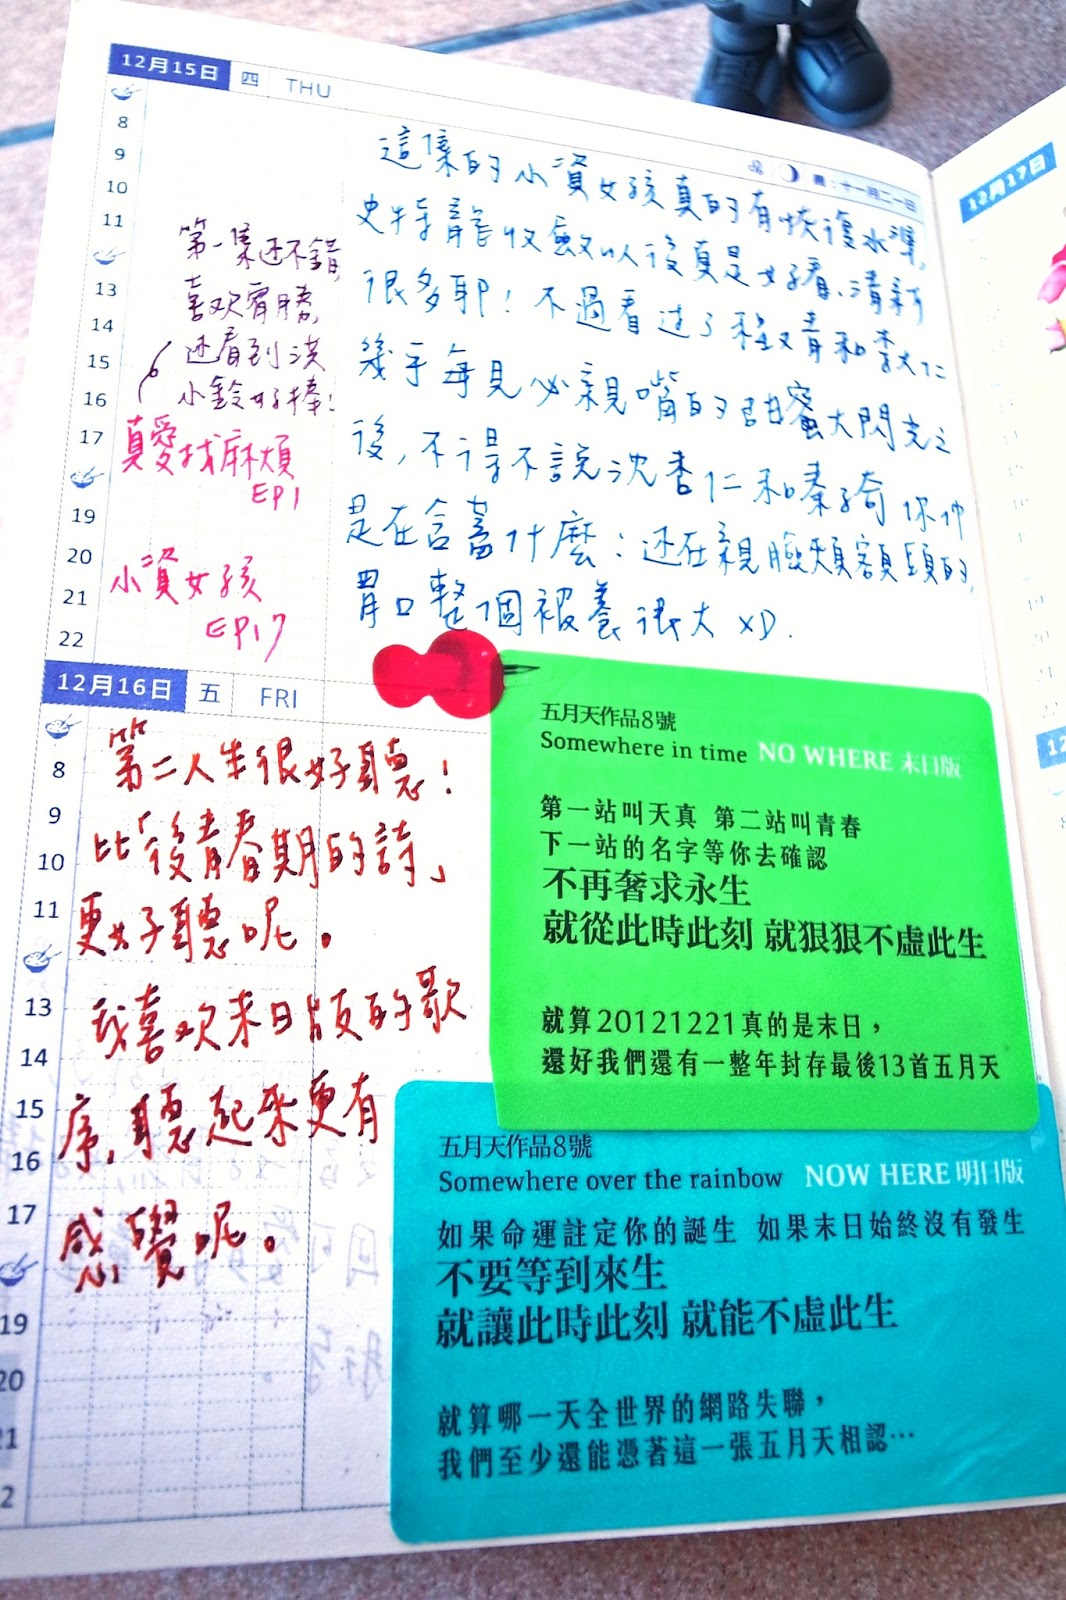 12月15日 四 THU
農:十一月二一日
8
9
10
11
13
14
15
16
17
19
20
21
22
第一集还不錯,
喜欢宥勝,
还看到洪
小鈴好棒!
真愛找麻煩
EP1
小資女孩
EP17
這集的小資女孩真的有恢復水準,
史特龍收斂以後真是好看、清新
很多耶!不過看过了程又青和李大仁
幾乎每見必親嘴的甜蜜大閃光之
後,不得不說沈杏仁和秦子奇你们
是在含蓄什麼:还在親臉頰額頭的,
胃口整個被養很大XD.
12月16日 五 FRI
8
9
10
11
13
14
15
16
17
19
20
21
2
第二人生很好聽!
比「後青春期的詩」
更好聽呢。
我喜欢末日版的歌
序,聽起來更有
感覺呢。
五月天作品8號
Somewhere in time NO WHERE 末日版
第一站叫天真 第二站叫青春
下一站的名字等你去確認
不再奢求永生
就從此時此刻 就狠狠不虛此生
就算20121221真的是末日,
還好我們還有一整年封存最後13首五月天
五月天作品8號
Somewhere over the rainbow NOW HERE 明日版
如果命運註定你的誕生 如果末日始終沒有發生
不要等到來生
就讓此時此刻 就能不虛此生
就算哪一天全世界的網路失聯,
我們至少還能憑著這一張五月天相認…
12月17日